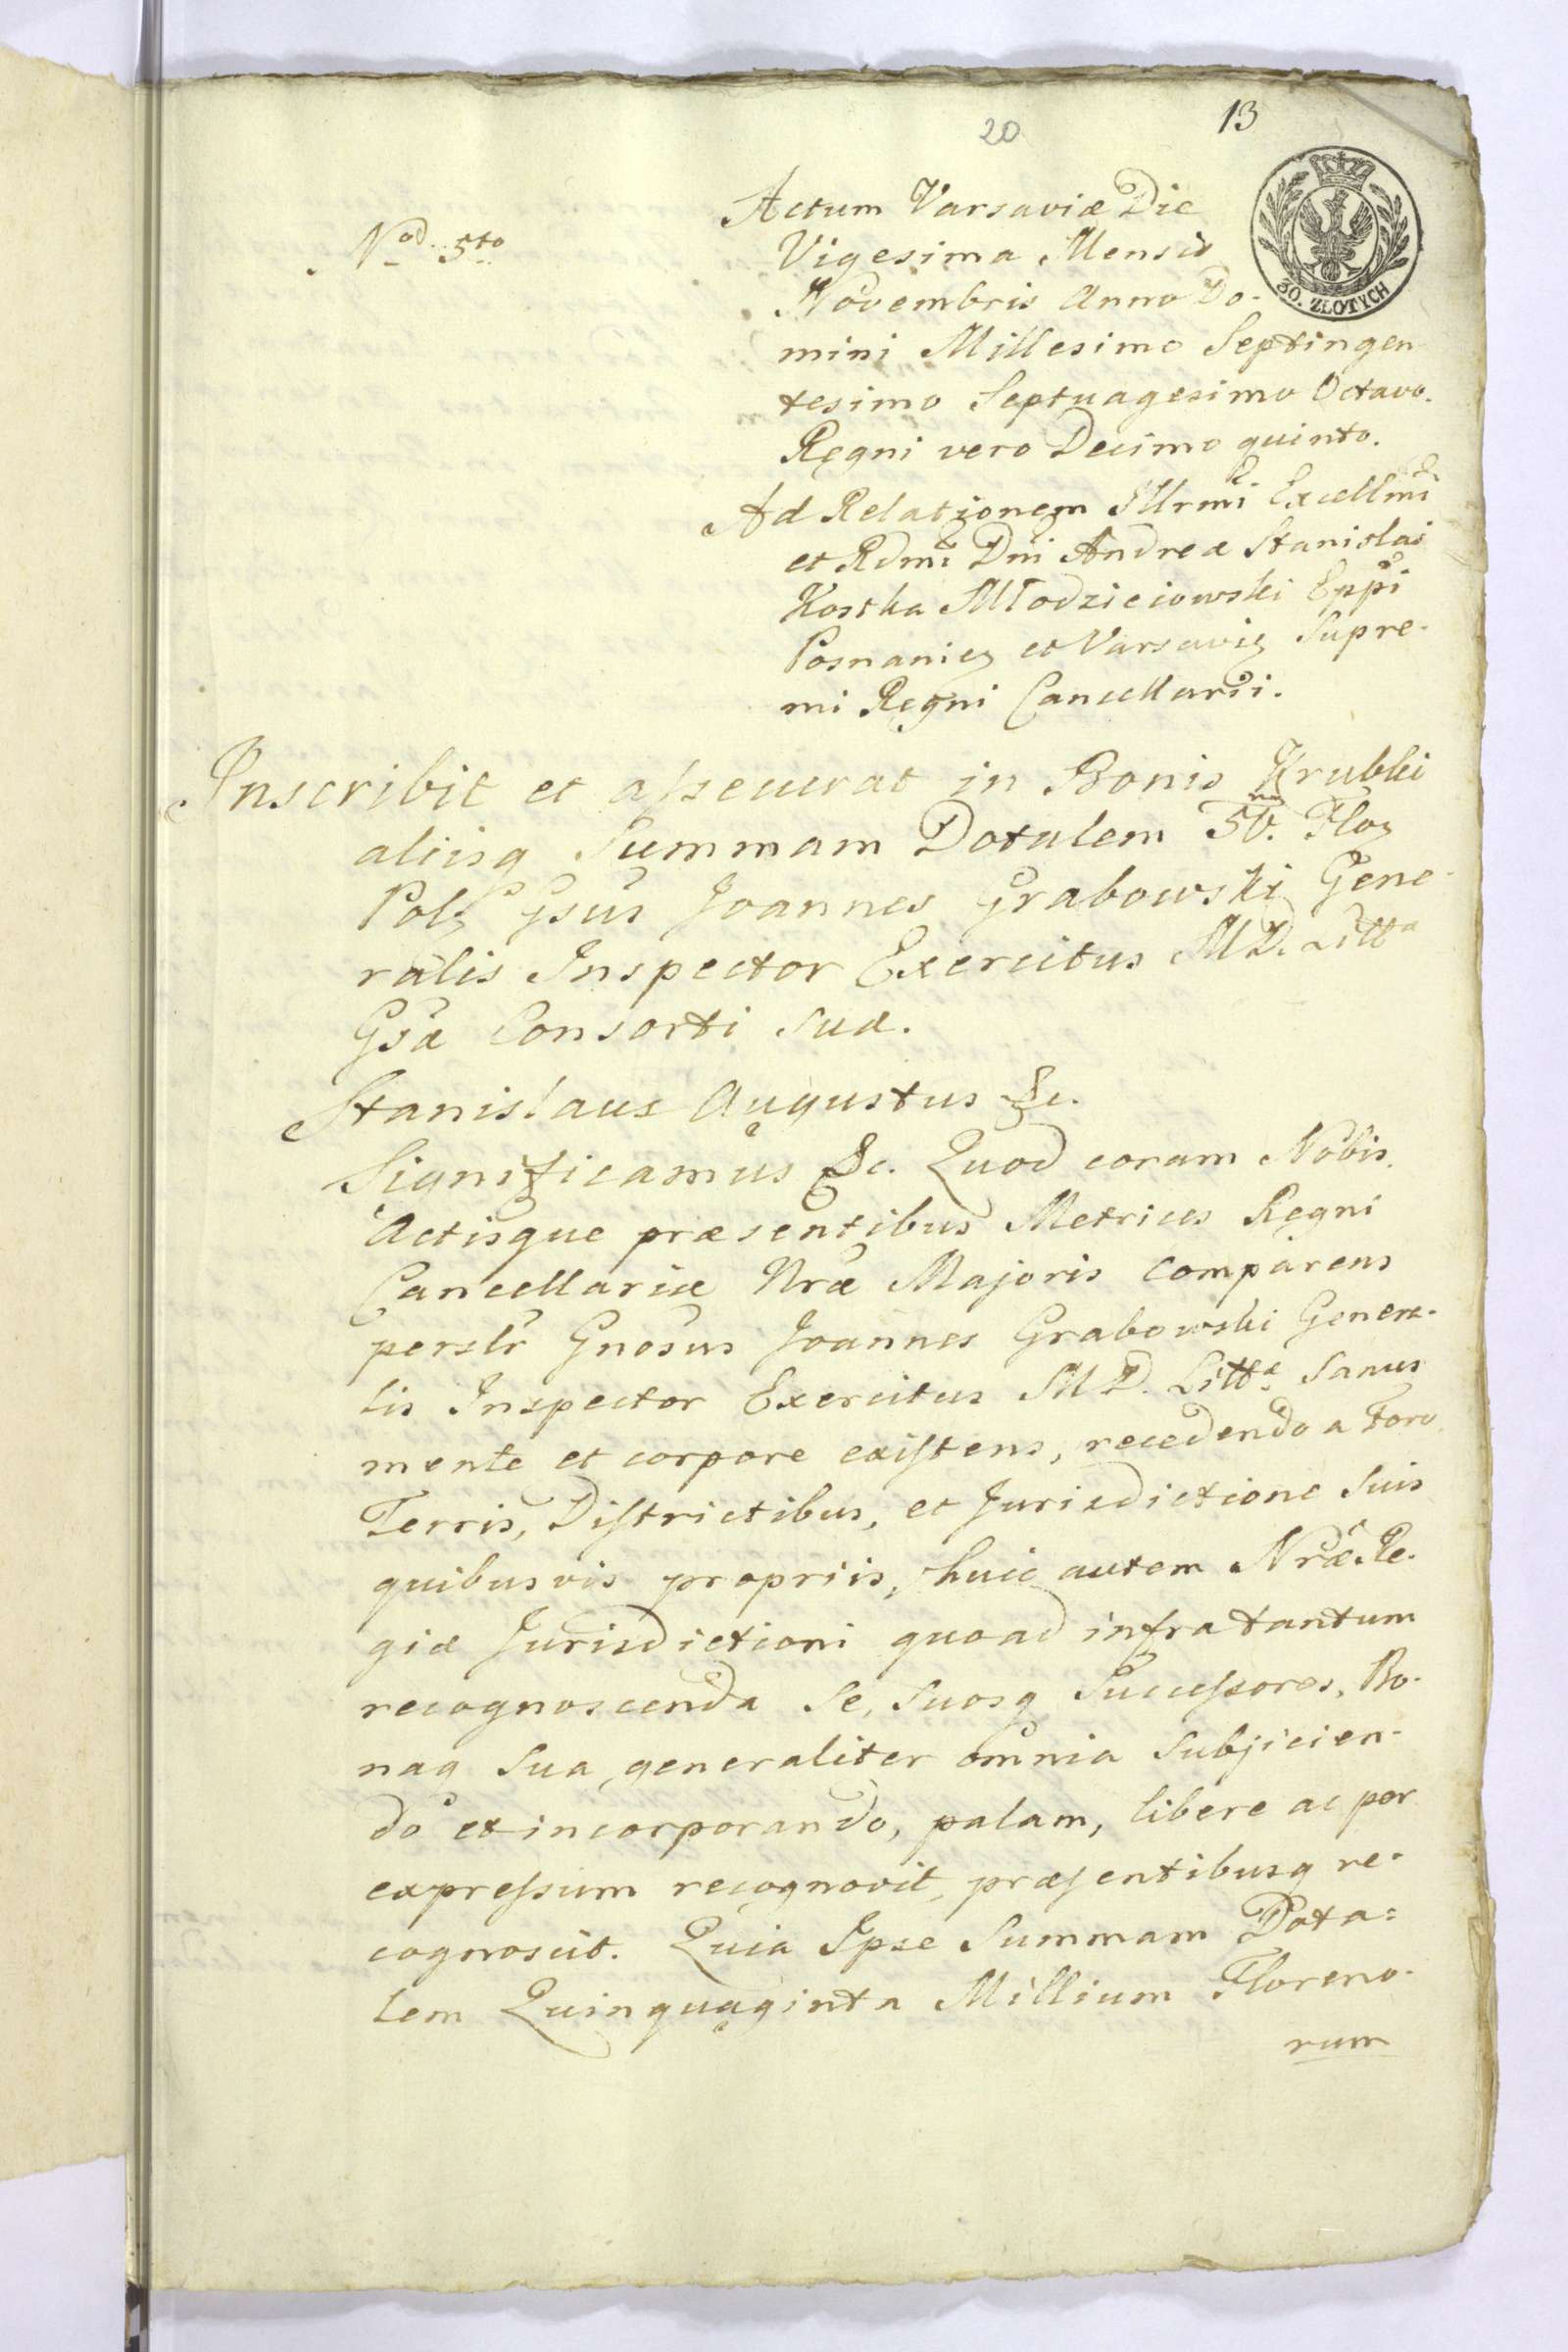 20
13
Nº 5to
30. ZŁOTYCH
Actum Varsaviæ Die
Vigesima Mensis
Novembris Anno Do-
mini Millesimo Septingen
tesimo Septuagesimo Octavo.
Regni vero Decimo quinto.
Ad Relationem Illrmi Excellmi
et Rdmi Dni Andreæ Stanislai
Kostka Młodzieiowski Eppi
Posnaniez et Varsaviz Supre-
mi Regni Cancellarii.
Inscribit et asseccurat in Bonis Krubki
aliisq Summam Dotalem 50. Floz
Polz Gsus Joannes Grabowski Gene-
ralis Inspector Exercitus M D. Litta
Gsæ Consorti suæ.
Stanislaus Augustus &c.
Significamus &c. Quod coram Nobis
Actisque præsentibus Metrices Regni
Cancellariæ Nræ Majoris comparens
perslr Gnosus Joannes Grabowski Genera-
lis Inspector Exercitus M D. Littæ Sanus
mente et corpore existens, recedendo a Foro
Terris, Districtibus, et Jurisdictione suis
quibusvis propriis, huic autem Nræ Re-
giæ Jurisdictioni quoad infra tantum
recognoscenda se, suosq Successores, Bo-
naq sua generaliter omnia subjicien-
do et incorporando, palam, libere ac per
expressum recognovit, præsentibusq re-
cognoscit. Quia Ipse Summam Dota=
lem Quinquaginta Millium Floreno-
rum